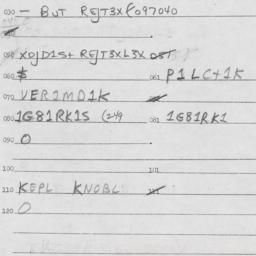 030 — BUT REJT3X£097040
050 XOJD1S+ REJT3XL3X DST
060 $ 061 P1LC+1K
070 VER1MD1K
080 1G81RK1S (249 081 1G81RK1
090 0
100 101
110 KEPL KNOBL
120 0